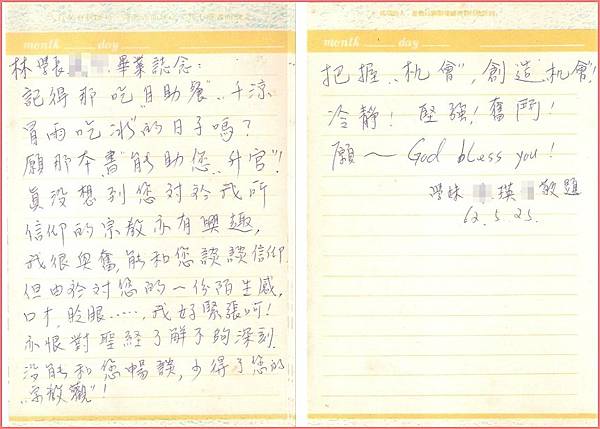 month day
林學長 畢業誌念:
記得那吃"自助餐"..千涼
冒雨吃"冰"的日子嗎?
願那本書"能助您..升官"!
真沒想到您对於我所
信仰的宗教亦有興趣,
我很興奮,能和您談談信仰.
但由於对您的一份陌生感,
口才,臉眼……,我好緊張呵!
亦恨對聖経了解了夠深刻.
沒能和您暢談,少得了您的
"宗教觀"!
month day
把握"机會",創造"机會"!
冷静! 堅強! 奮鬥!
願～God bless you!
學妹 瑛 敬題
62.5.25.